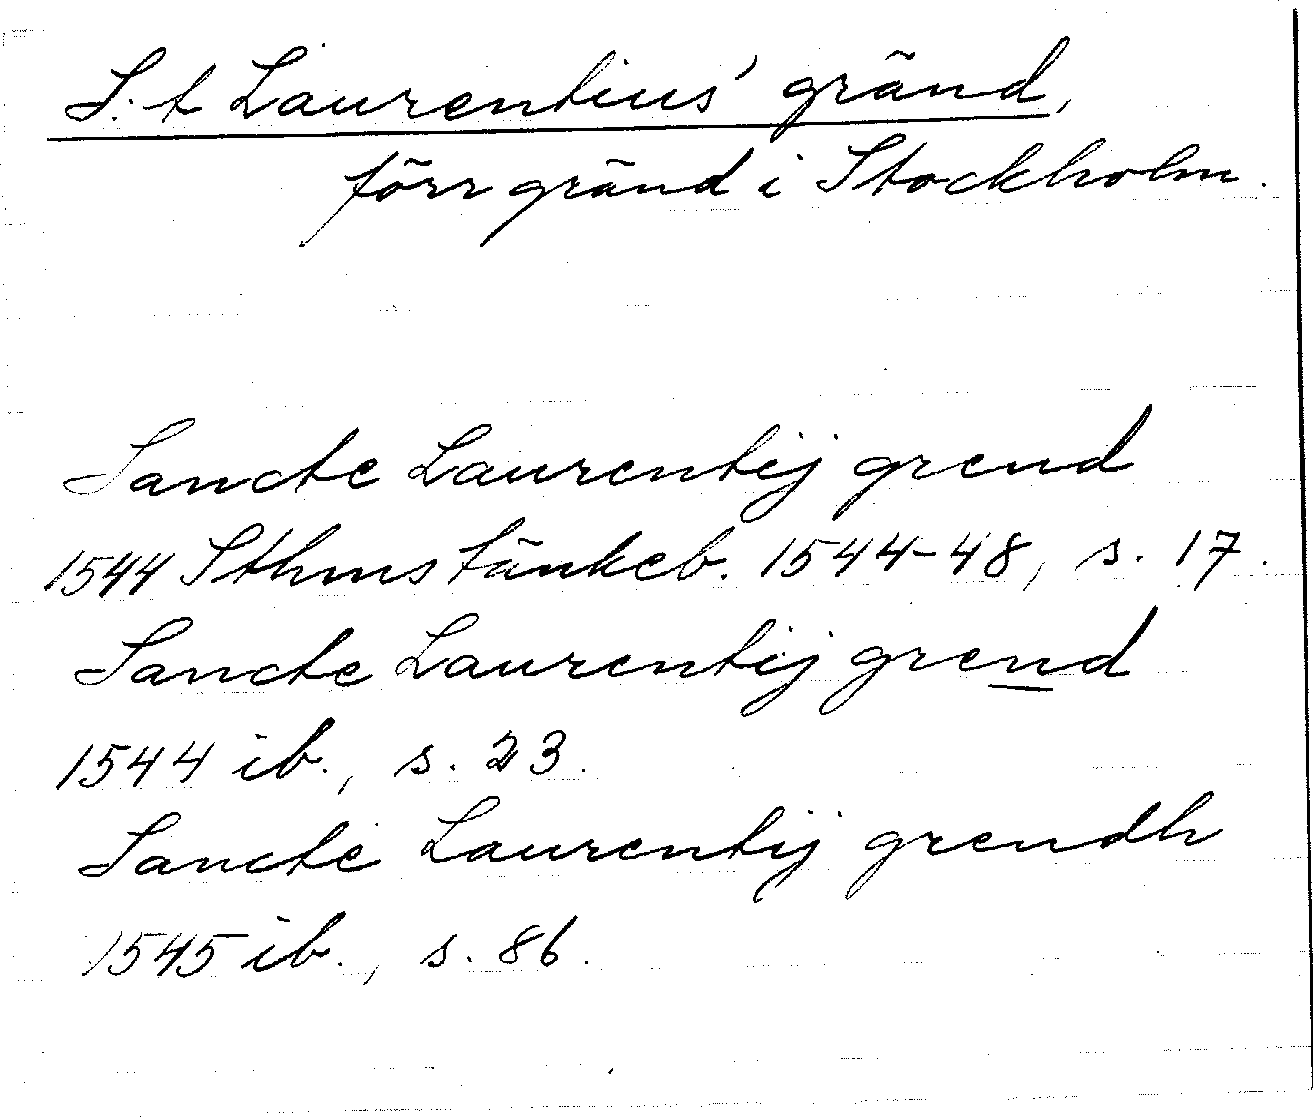 S:t Laurentius' gränd,
förr gränd i Stockholm.
Sancte Laurentij grend
1544 Sthms tänkeb. 1544-48, s. 17.
Sancte Laurentij grend
1544 ib., s. 23.
Sancte Laurentij grendh
1545 ib., s. 86.